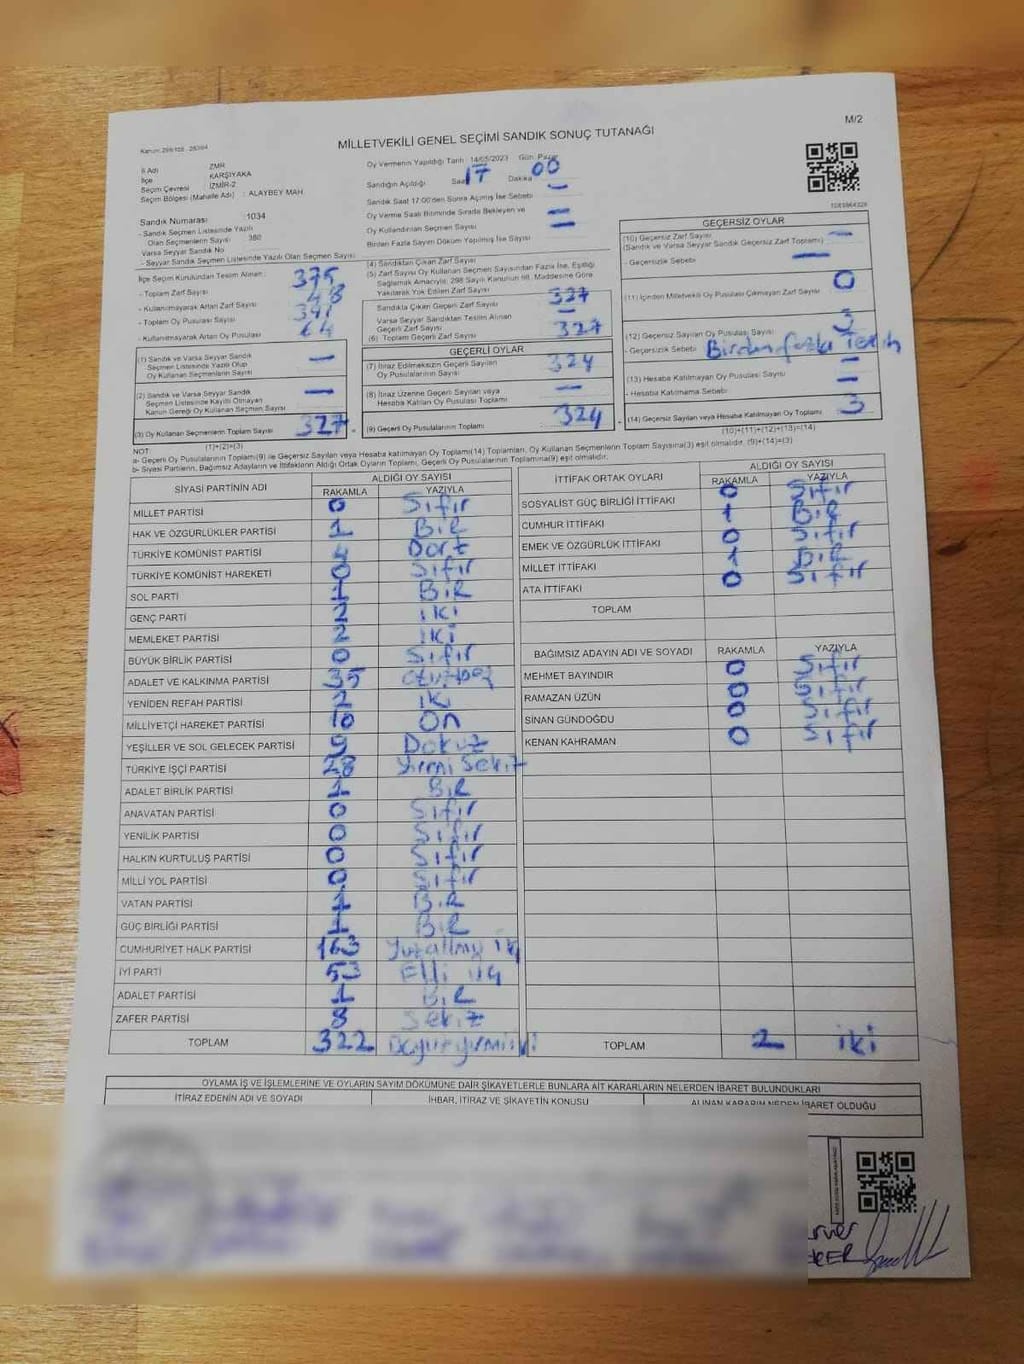 M/2
MİLLETVEKİLİ GENEL SEÇİMİ SANDIK SONUÇ TUTANAĞI
İl Adı : ZMR
İlçe : KARŞIYAKA
Seçim Çevresi : İZMİR-2
Seçim Bölgesi (Mahalle Adı) : ALAYBEY MAH.
Sandık Numarası : 1034
- Sandık Seçmen Listesinde Yazılı
Olan Seçmenlerin Sayısı 380
Varsa Seyyar Sandık No
- Seyyar Sandık Seçmen Listesinde Yazılı Olan Seçmen Sayısı
İlçe Seçim Kurulundan Teslim Alınan
- Toplam Zarf Sayısı 375
- Kullanılmayarak Artan Zarf Sayısı 48
- Toplam Oy Pusulası Sayısı
- Kullanılmayarak Artan Oy Pusulası
(1) Sandık ve Varsa Seyyar Sandık
Seçmen Listesinde Yazılı Olup
Oy Kullanan Seçmenlerin Sayısı —
(2) Sandık ve Varsa Seyyar Sandık
Seçmen Listesinde Kayıtlı Olmayan
Kanun Gereği Oy Kullanan Seçmen Sayısı —
(3) Oy Kullanan Seçmenlerin Toplam Sayısı 327.
(1)+(2)=(3)
Oy Vermenin Yapıldığı Tarih 14/05/2023 Gün: Pazar
Sandığın Açıldığı Saat 17 Dakika 00
Sandık Saat 17:00'den Sonra Açılmış İse Sebebi —
Oy Verme Saati Bitiminde Sırada Bekleyen ve
Oy Kullandırılan Seçmen Sayısı —
Birden Fazla Sayım Döküm Yapılmış İse Sayısı —
(4) Sandıktan Çıkan Zarf Sayısı
(5) Zarf Sayısı Oy Kullanan Seçmen Sayısından Fazla İse, Eşitliği
Sağlamak Amacıyla, 298 Sayılı Kanunun 98. Maddesine Göre
Yakılarak Yok Edilen Zarf Sayısı
Sandıkta Çıkan Geçerli Zarf Sayısı 327
Varsa Seyyar Sandıktan Teslim Alınan
Geçerli Zarf Sayısı —
(6) Toplam Geçerli Zarf Sayısı 327
GEÇERLİ OYLAR
(7) İtiraz Edilmeksizin Geçerli Sayılan
Oy Pusulalarının Sayısı 324
(8) İtiraz Üzerine Geçerli Sayılan veya
Hesaba Katılan Oy Pusulası Toplamı —
(9) Geçerli Oy Pusulalarının Toplamı 324
GEÇERSİZ OYLAR
(10) Geçersiz Zarf Sayısı
(Sandık ve Varsa Seyyar Sandık Geçersiz Zarf Toplamı) —
- Geçersizlik Sebebi —
(11) İçinden Milletvekili Oy Pusulası Çıkmayan Zarf Sayısı 0
(12) Geçersiz Sayılan Oy Pusulası Sayısı 3
- Geçersizlik Sebebi Birden fazla Tercih
(13) Hesaba Katılmayan Oy Pusulası Sayısı —
- Hesaba Katılmama Sebebi —
(14) Geçersiz Sayılan veya Hesaba Katılmayan Oy Toplamı 3
(10)+(11)+(12)+(13)=(14)
NOT:
a- Geçerli Oy Pusulaları Toplamı(9) ile Geçersiz Sayılan veya Hesaba katılmayan Oy Toplamı(14) Toplamları, Oy Kullanan Seçmenlerin Toplam Sayısına(3) eşit olmalıdır. (9)+(14)=(3)
b- Siyasi Partilerin, Bağımsız Adayların ve İttifakların Aldığı Ortak Oyların Toplamı, Geçerli Oy Pusulalarının Toplamına(9) eşit olmalıdır.
SİYASİ PARTİNİN ADI ALDIĞI OY SAYISI
RAKAMLA YAZIYLA
MİLLET PARTİSİ 0 Sıfır
HAK VE ÖZGÜRLÜKLER PARTİSİ 1 Bir
TÜRKİYE KOMÜNİST PARTİSİ 4 Dört
TÜRKİYE KOMÜNİST HAREKETİ 0 Sıfır
SOL PARTİ 1 Bir
GENÇ PARTİ 2 iki
MEMLEKET PARTİSİ 2 iki
BÜYÜK BİRLİK PARTİSİ 0 Sıfır
ADALET VE KALKINMA PARTİSİ 35
YENİDEN REFAH PARTİSİ 2 iki
MİLLİYETÇİ HAREKET PARTİSİ 10 On
YEŞİLLER VE SOL GELECEK PARTİSİ 9 Dokuz
TÜRKİYE İŞÇİ PARTİSİ 28 Yirmi Sekiz
ADALET BİRLİK PARTİSİ 1 Bir
ANAVATAN PARTİSİ 0 Sıfır
YENİLİK PARTİSİ 0 Sıfır
HALKIN KURTULUŞ PARTİSİ 0 Sıfır
MİLLİ YOL PARTİSİ 0 Sıfır
VATAN PARTİSİ 1 Bir
GÜÇ BİRLİĞİ PARTİSİ 1 Bir
CUMHURİYET HALK PARTİSİ 163
İYİ PARTİ 53 Elli üç
ADALET PARTİSİ 1 Bir
ZAFER PARTİSİ 8 Sekiz
TOPLAM 322
İTTİFAK ORTAK OYLARI ALDIĞI OY SAYISI
RAKAMLA YAZIYLA
SOSYALİST GÜÇ BİRLİĞİ İTTİFAKI 0 Sıfır
CUMHUR İTTİFAKI 1 Bir
EMEK VE ÖZGÜRLÜK İTTİFAKI 0 Sıfır
MİLLET İTTİFAKI 1 Bir
ATA İTTİFAKI 0 Sıfır
TOPLAM
BAĞIMSIZ ADAYIN ADI VE SOYADI RAKAMLA YAZIYLA
MEHMET BAYINDIR 0 Sıfır
RAMAZAN ÜZÜN 0 Sıfır
SİNAN GÜNDOĞDU 0 Sıfır
KENAN KAHRAMAN 0 Sıfır
TOPLAM 2 iki
OYLAMA İŞ VE İŞLEMLERİNE VE OYLARIN SAYIM DÖKÜMÜNE DAİR ŞİKAYETLERLE BUNLARA AİT KARARLARIN NELERDEN İBARET BULUNDUKLARI
İTİRAZ EDENİN ADI VE SOYADI İHBAR, İTİRAZ VE ŞİKAYETİN KONUSU ALINAN KARARIN NEDEN İBARET OLDUĞU